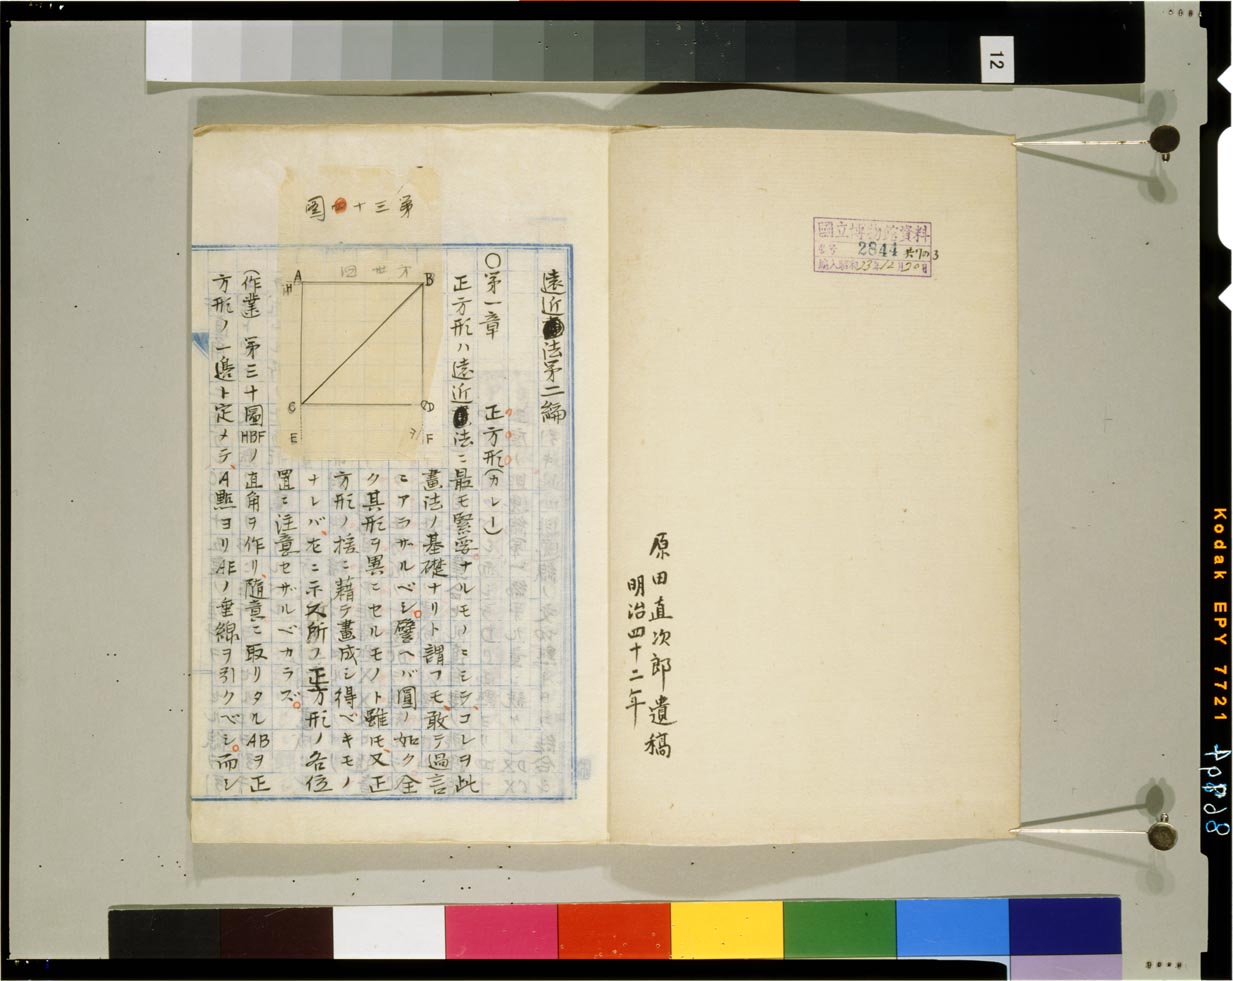 12
國立博物館資料
番号 2844 共7の3
購入昭和13年12月20日
原田直次郎遺稿
明治四十二年
遠近法第二編
○第一章 正方形(カレー)
正方形ハ遠近法ニ最モ緊要ナルモノニシテ、コレヲ此
畫法ノ基礎ナリト謂フモ、敢テ過言
ニアラザルベシ。譬ヘバ圓ノ如ク全
ク其形ヲ異ニセルモノト雖モ、又正
方形ノ
ニ藉テ畫成シ得ベキモノ
ナレバ、左ニ示ス所ノ正方形ノ各位
置ニ注意セザルベカラズ。
(作業 第三十圖HBFノ直角ヲ作リ、隨意ニ取リタルABヲ正
方形ノ一邊ト定メテ、A點ヨリAEノ垂線ヲ引クベシ。而シ
第三十
圖
A
B
H
C
D
E
F
Kodak EPY 7721